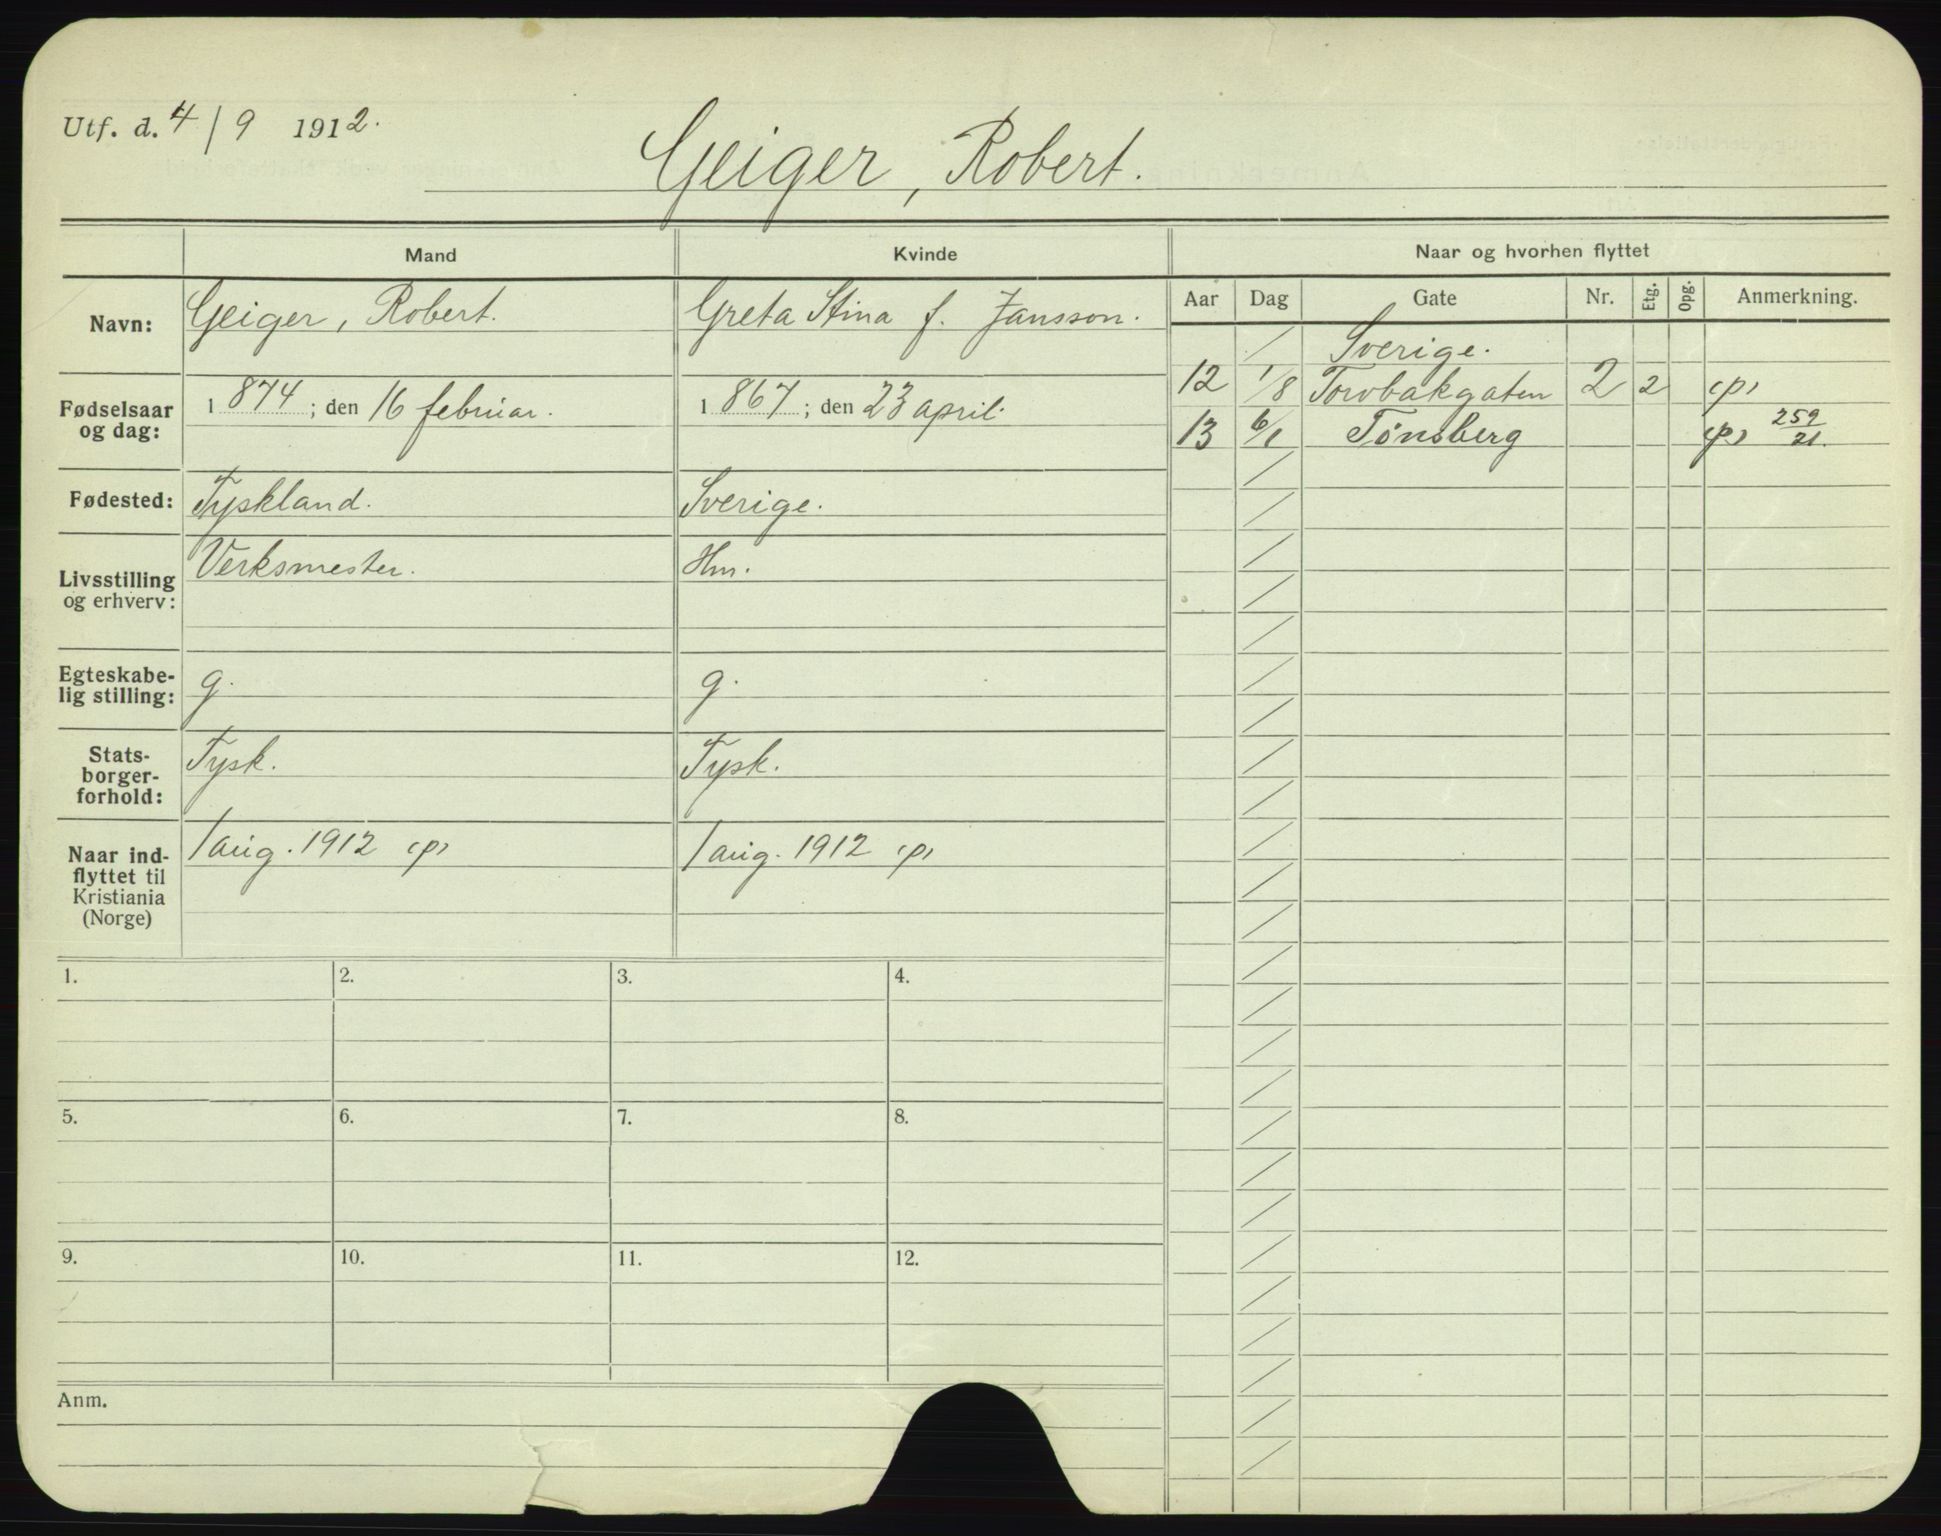 Utf. d. 4/9 1912.
Geiger, Robert.
Mand Kvinde Naar og hvorhen flyttet
Aar Dag Gate Nr. Etg. Opg. Anmerkning.
Navn: Geiger, Robert. Greta Stina f. Jansson.
Sverige.
12 1/8 Torvbakgaten 2 2 (p)
13 6/1 Tønsberg (p) 259/21.
Fødselsaar
og dag: 1874; den 16 februar. 1867; den 23 april.
Fødested: Tyskland. Sverige.
Livsstilling
og erhverv: Verksmester. Hm.
Egteskabe-
lig stilling: g. g.
Stats-
borger-
forhold: Tysk. Tysk.
Naar ind-
flyttet til
Kristiania
(Norge) 1 aug. 1912 (p) 1 aug. 1912 (p)
1. 2. 3. 4.
5. 6. 7. 8.
9. 10. 11. 12.
Anm.